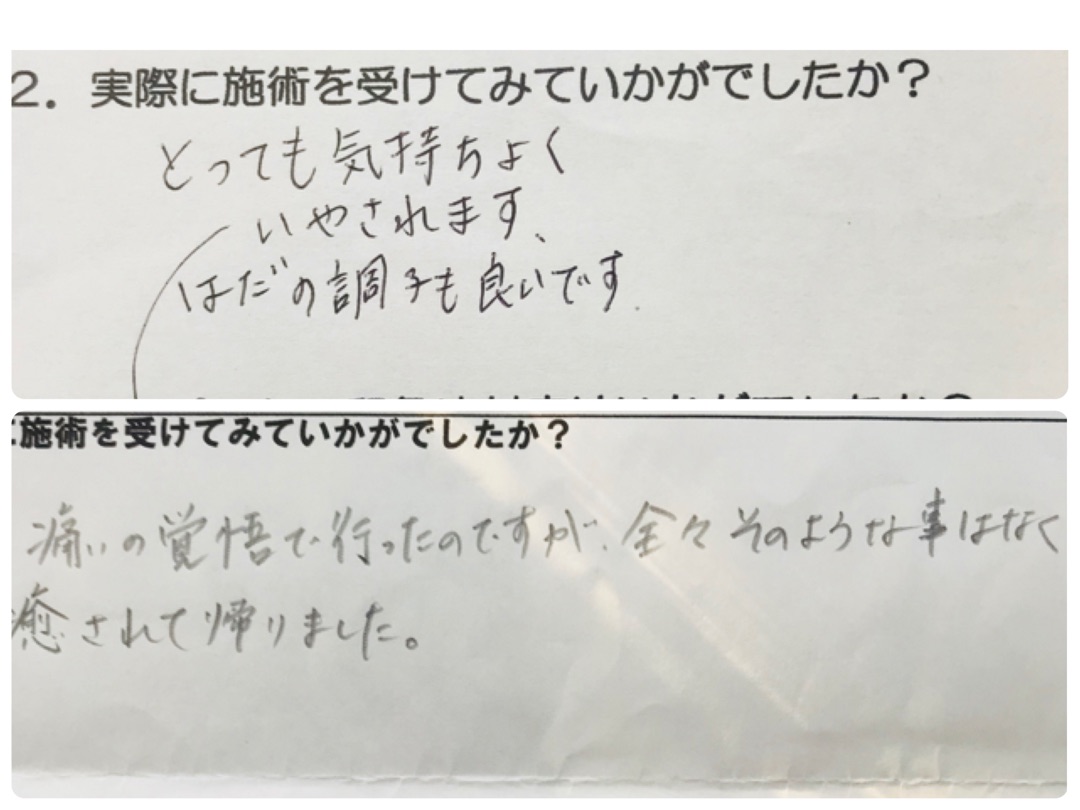 2. 実際に施術を受けてみていかがでしたか？
とっても気持ちよく
いやされます、
はだの調子も良いです.
施術を受けてみていかがでしたか？
痛いの覚悟で行ったのですが、全々そのような事はなく
癒されて帰りました。